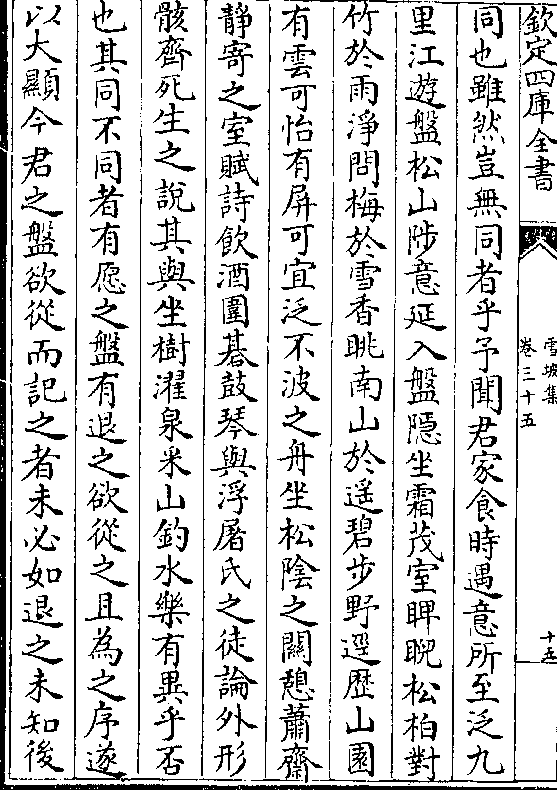 欽定四庫全書
雪坡集
卷三十五
十五
同也雖然豈無同者乎予聞君家食時遇意所至泛九
里江遊盤松山陟意延入盤隠坐霜茂室睥睨松柏對
竹於雨淨問梅於雪香眺南山於遥碧步野逕歴山園
有雲可怡有屏可宜泛不波之舟坐松陰之關憩蕭齋
靜寄之室賦詩飲酒圍碁鼓琴與浮屠氏之徒論外形
骸齊死生之說其與坐樹濯泉米山釣水樂有異乎否
也其同不同者有愿之盤有退之欲從之且為之序遂
以大顯今君之盤欲從而記之者未必如退之未知後